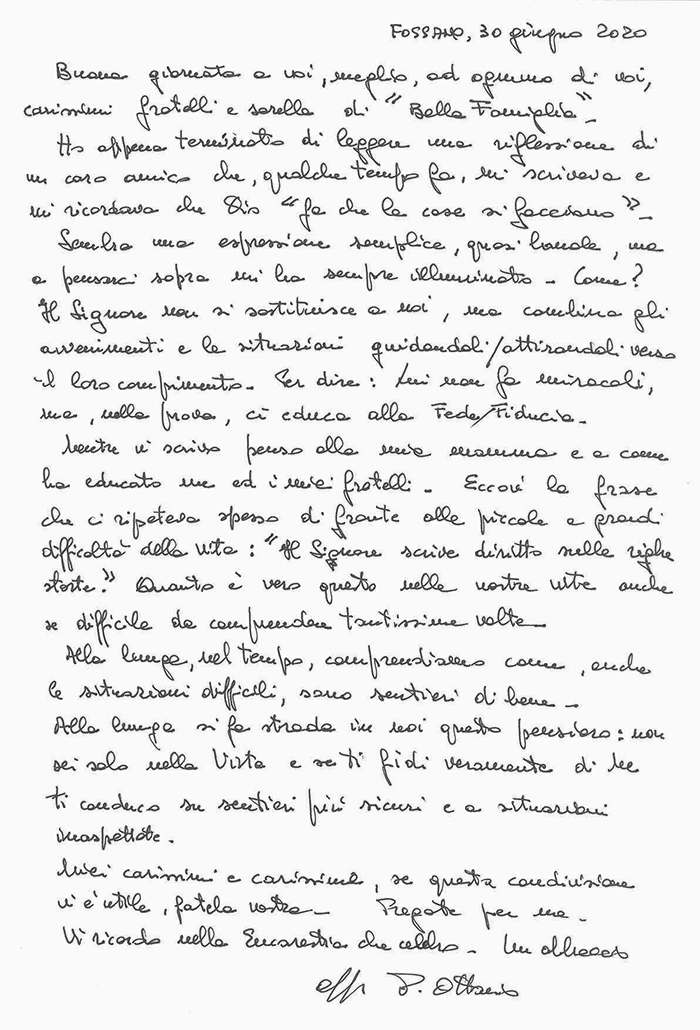 FOSSANO, 30 giugno 2020
Buona giornata a voi, meglio, ad ognuno di voi,
carissimi fratelli e sorelle di "Bella Famiglia"-
Ho appena terminato di leggere una riflessione di
un caro amico che, qualche tempo fa, mi scriveva e
mi ricordava che Dio "fa che le cose si facciano"-
Sembra una espressione semplice, quasi banale, ma
a pensarci sopra mi ha sempre illuminato - Come?
Il Signore non si sostituisce a noi, ma combina gli
avvenimenti e le situazioni guidandoli/attirandoli verso
il loro compimento - Per dire: Lui non fa miracoli,
ma, nella prova, ci educa alla Fede/Fiducia -
Mentre vi scrivo penso alla mia mamma e a come
ha educato me ed i miei fratelli - Eccovi la frase
che ci ripeteva spesso di fronte alle piccole e grandi
difficoltà della vita: "Il Signore scrive diritto nelle righe
storte." Quanto è vero questo nelle nostre vite anche
se difficile da comprendere tantissime volte -
Alla lunga, nel tempo, comprendiamo come, anche
le situazioni difficili, sono sentieri di bene -
Alla lunga si fa strada in noi questo pensiero: non
sei solo nella Vita e se ti fidi veramente di Me
ti conduco su sentieri più sicuri e a situazioni
inaspettate.
Miei carissimi e carissime, se questa condivisione
vi è utile, fatela vostra - Pregate per me -
Vi ricordo nella Eucarestia che celebro - Un abbraccio
aff P. Ottavio